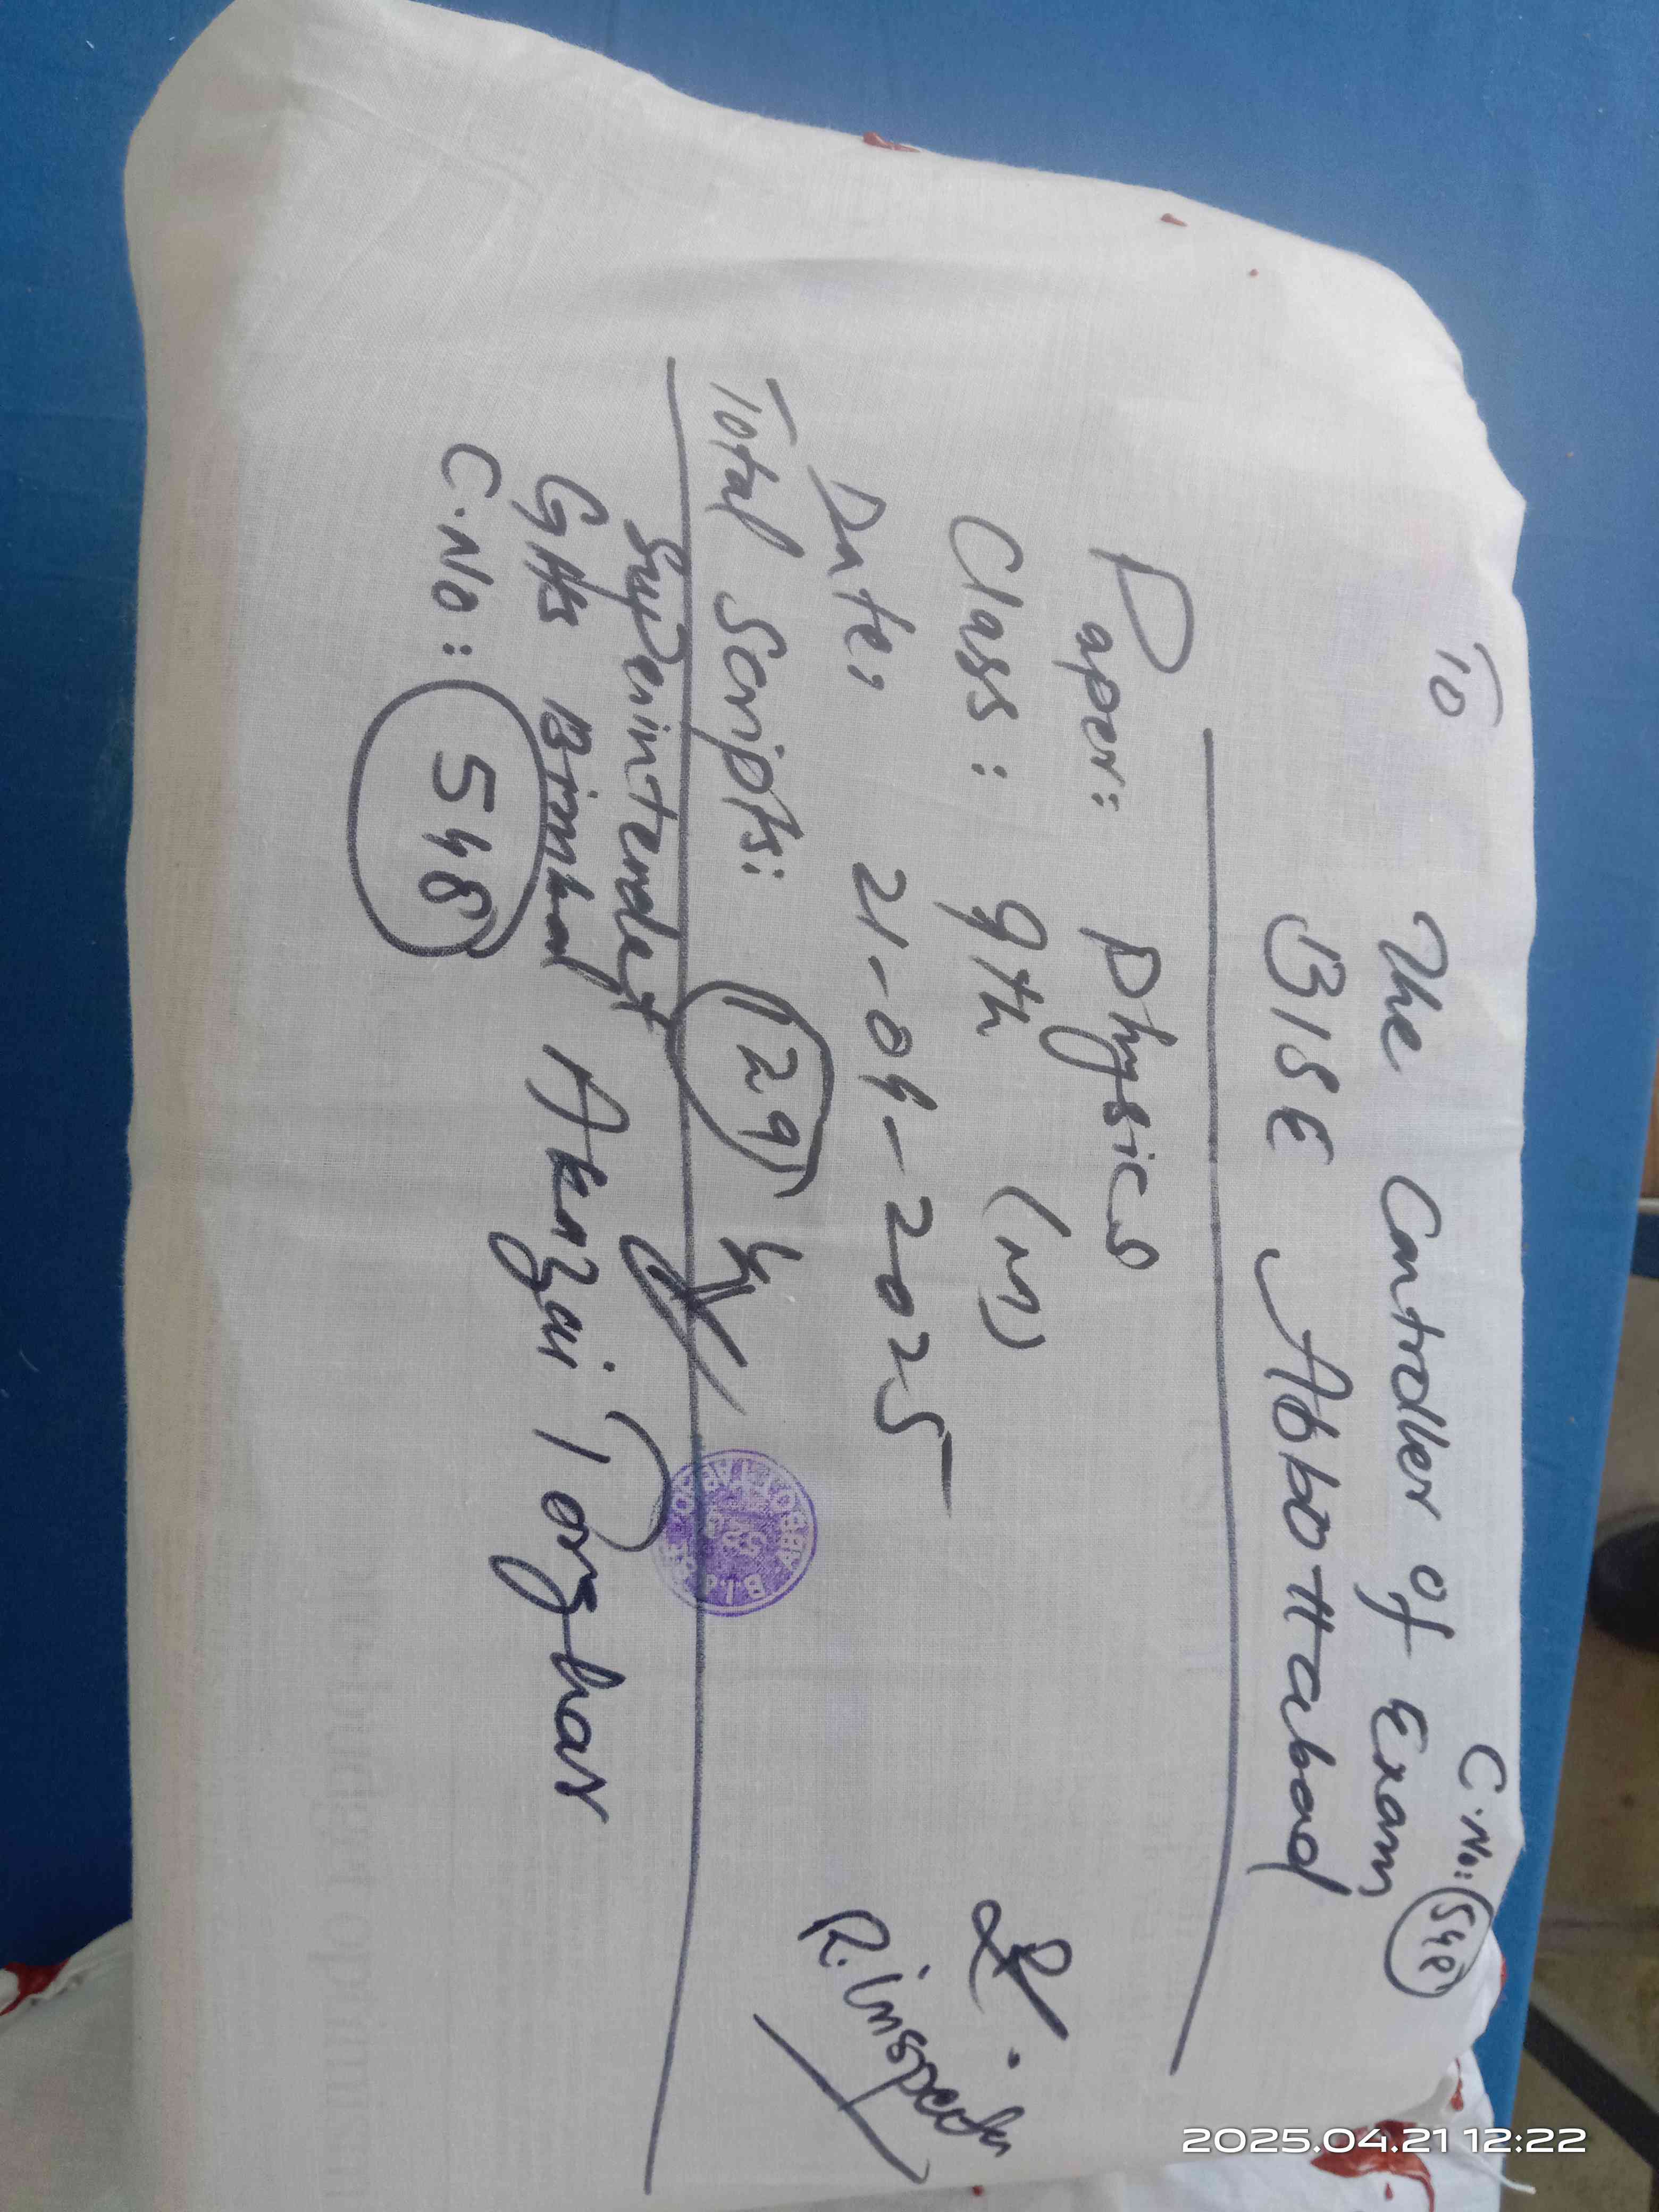 C.No: 548
To
The Controller of Exam
BISE Abbottabad
Paper: Physics
Class: 9th (M)
Date: 21-04-2025
Total Scripts: 29
R. Inspector
Superintendent
GHS Bimbal Akazai Torghar
C.No: 548
2025.04.21 12:22